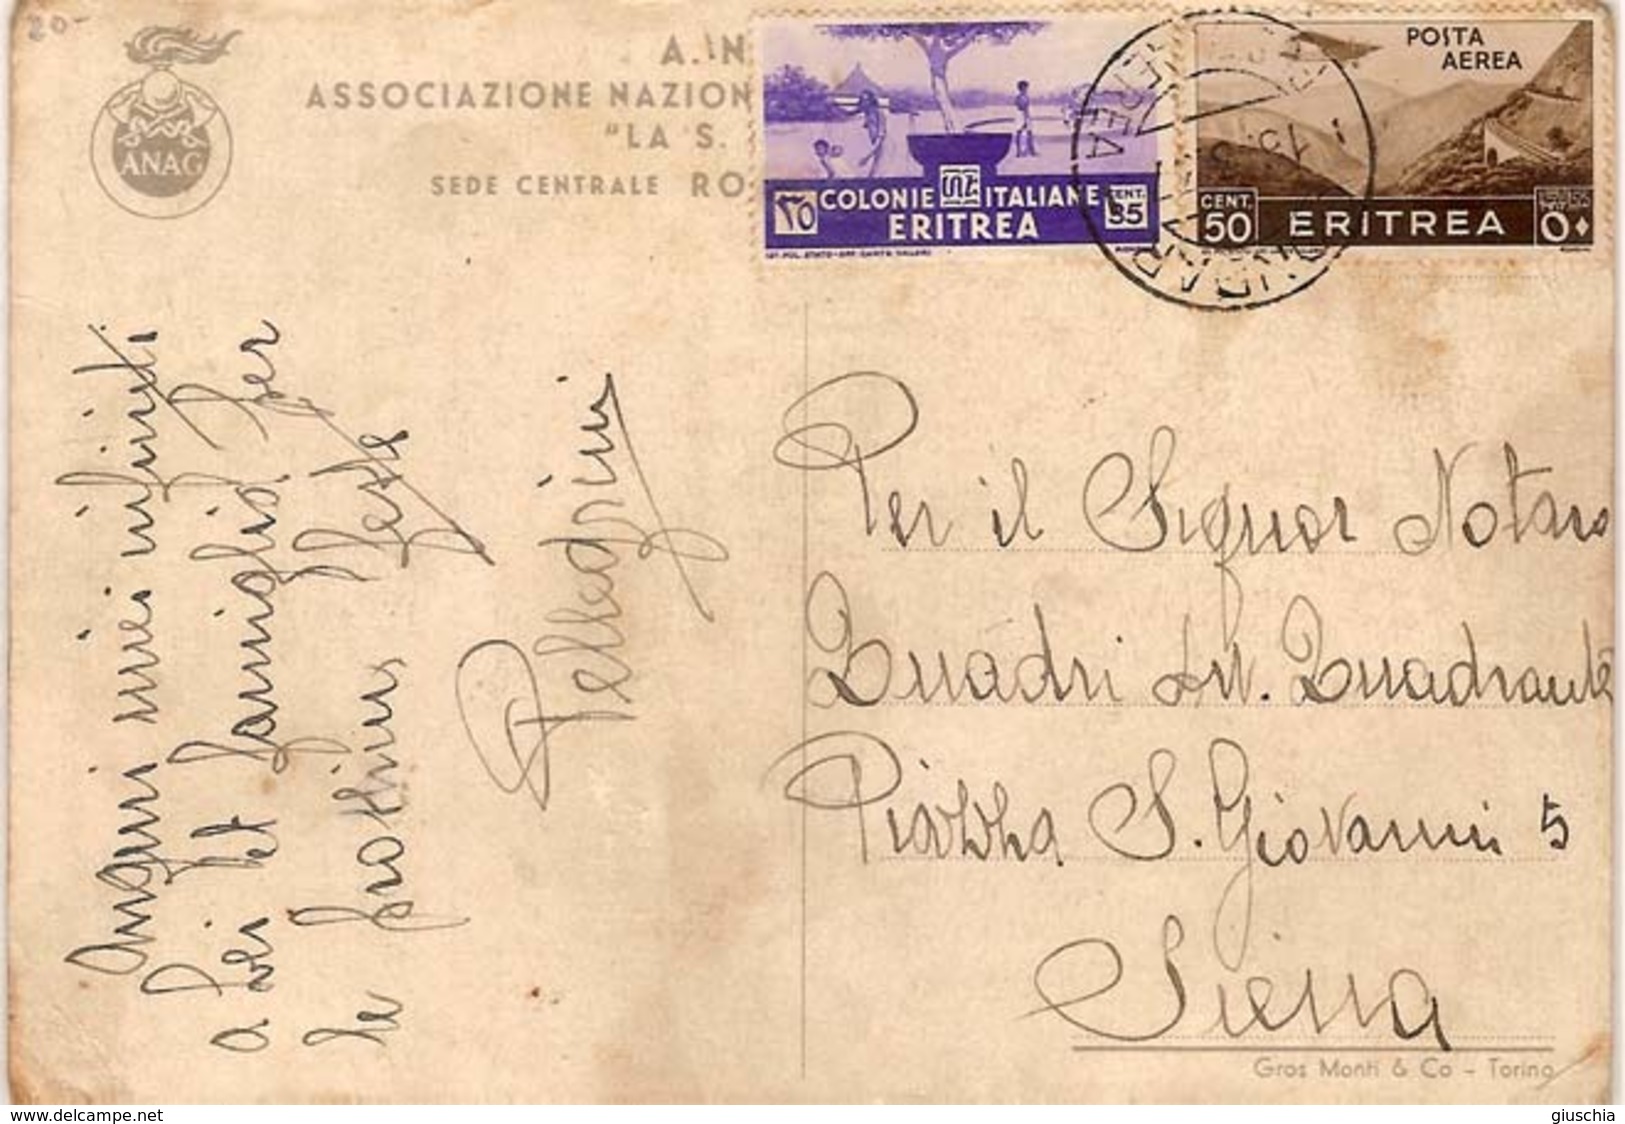 20-
A. N
ASSOCIAZIONE NAZION
"LA S.
SEDE CENTRALE RO
ANAG
COLONIE ITALIANE
ERITREA
CENT. 35
IST. POL. STATO-OFF. CARTE VALORI
POSTA
AEREA
CENT. 50
ERITREA
Auguri miei infiniti
a Lei et famiglia per
le prossime feste
Pellegrini
Per il Signor Notaro
Quadri Av. Quadrante
Piazza S. Giovanni 5
Siena
Gros Monti & Co - Torino
www.delcampe.net
giuschia